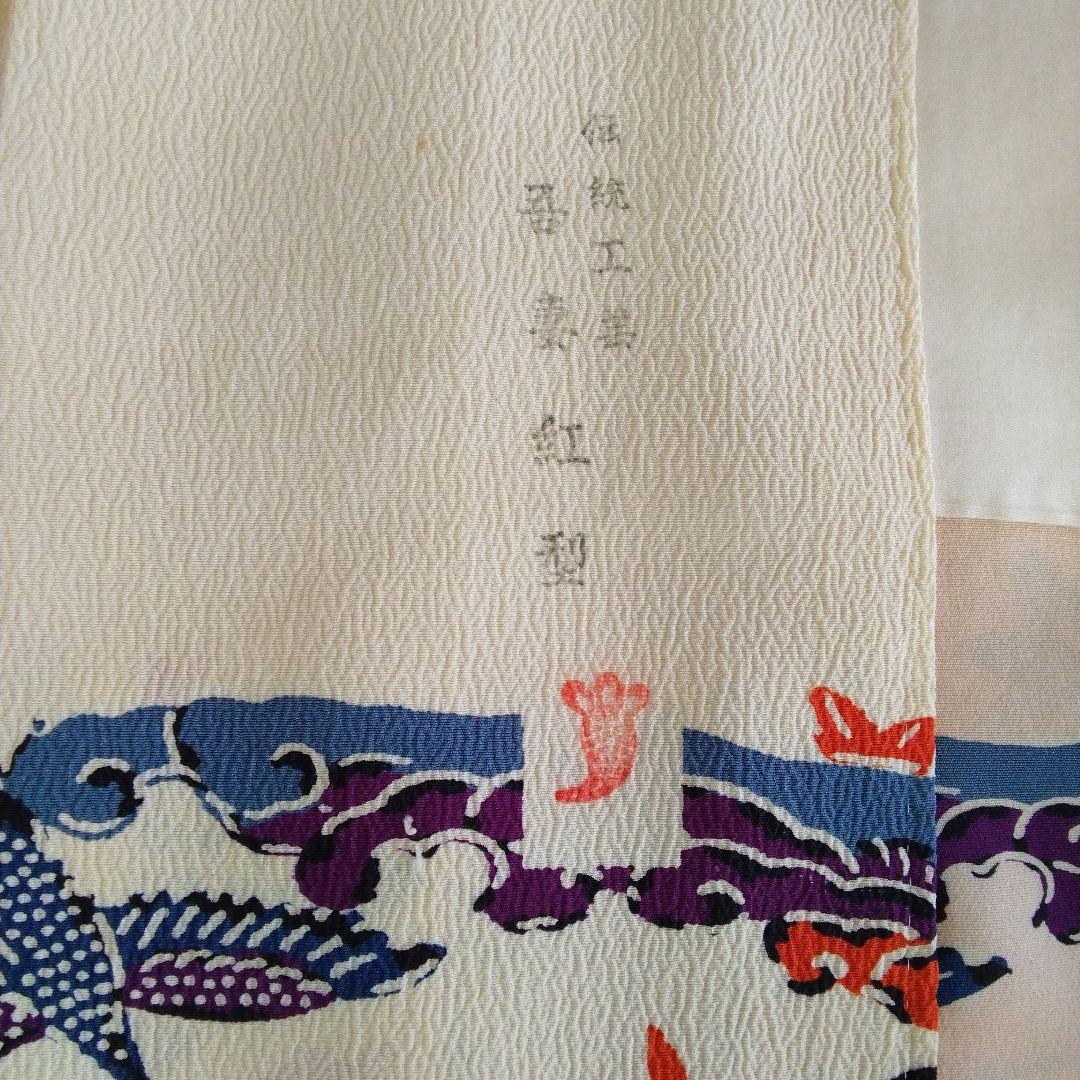 伝統工芸
吾妻紅型